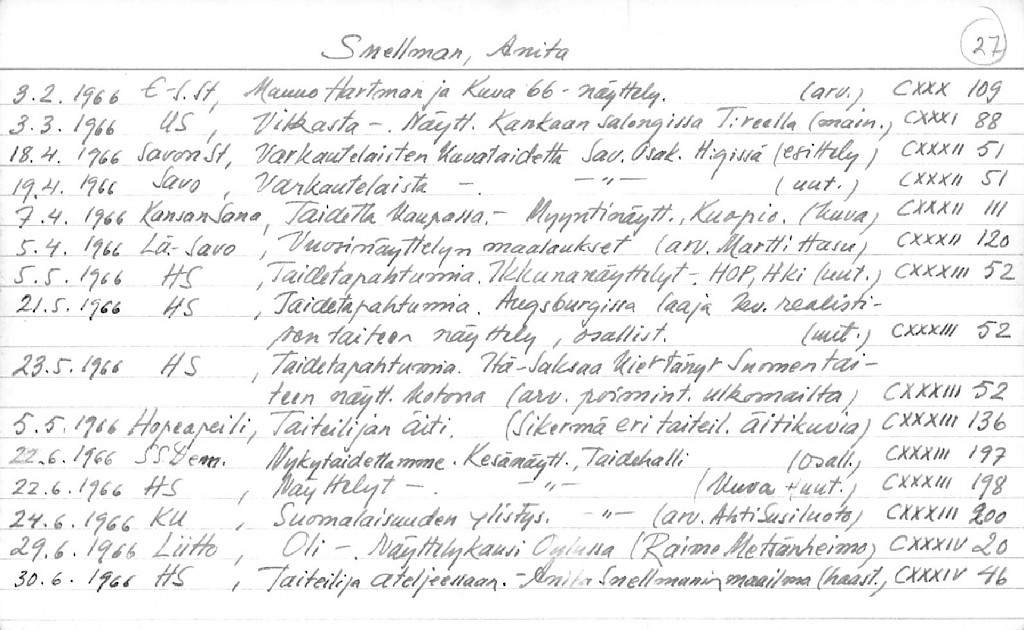 Snellman, Anita
27
3.2.1966 E-S.St, Mauno Hartman ja Kuva '66 - näyttely. (arv.) CXXX 109
3.3.1966 US, Viikasta -. Näytt. Kankaan salongissa T:reella (main.) CXXXI 88
18.4.1966 Savon St, Varkautelaisten kuvataidetta Sav. Osak. H:gissä (esittely) CXXXII 51
19.4.1966 Savo, Varkautelaista -. -"- (uut.) CXXXII 51
7.4.1966 Kansan Sana, Taidetta kaupassa. - Myyntinäytt., Kuopio. (kuva) CXXXII 111
5.4.1966 Lä-Savo, Vuosinäyttelyn maalaukset (arv. Martti Hasu) CXXXII 120
5.5.1966 HS, Taidetapahtumia. Ikkunanäyttelyt - HOP, Hki (uut.) CXXXIII 52
21.5.1966 HS, Taidetapahtumia. Augsburgissa laaja kv. realisti-
sen taiteen näyttely, osallist. (uut.) CXXXIII 52
23.5.1966 HS, Taidetapahtumia. Itä-Saksaa kiertänyt Suomen tai-
teen näytt. kotona (arv. poimint. ulkomailta) CXXXIII 52
5.5.1966 Hopeapeili, Taiteilijan äiti. (Sikermä eri taiteil. äitikuvia) CXXXIII 136
22.6.1966 SSDem. Nykytaidettamme. Kesänäytt., Taidehalli (osall.) CXXXIII 197
22.6.1966 HS, Näyttelyt -. -"- (kuva + uut.) CXXXIII 198
24.6.1966 KU, Suomalaisuuden ylistys. -"- (arv. Ahti Susiluoto) CXXXIII 200
29.6.1966 Liitto, Oli -. Näyttelykausi Oulussa (Raimo Metsänheimo) CXXXIV 20
30.6.1966 HS, Taiteilija ateljeessaan. - Anita Snellmanin maailma (haast.) CXXXIV 46